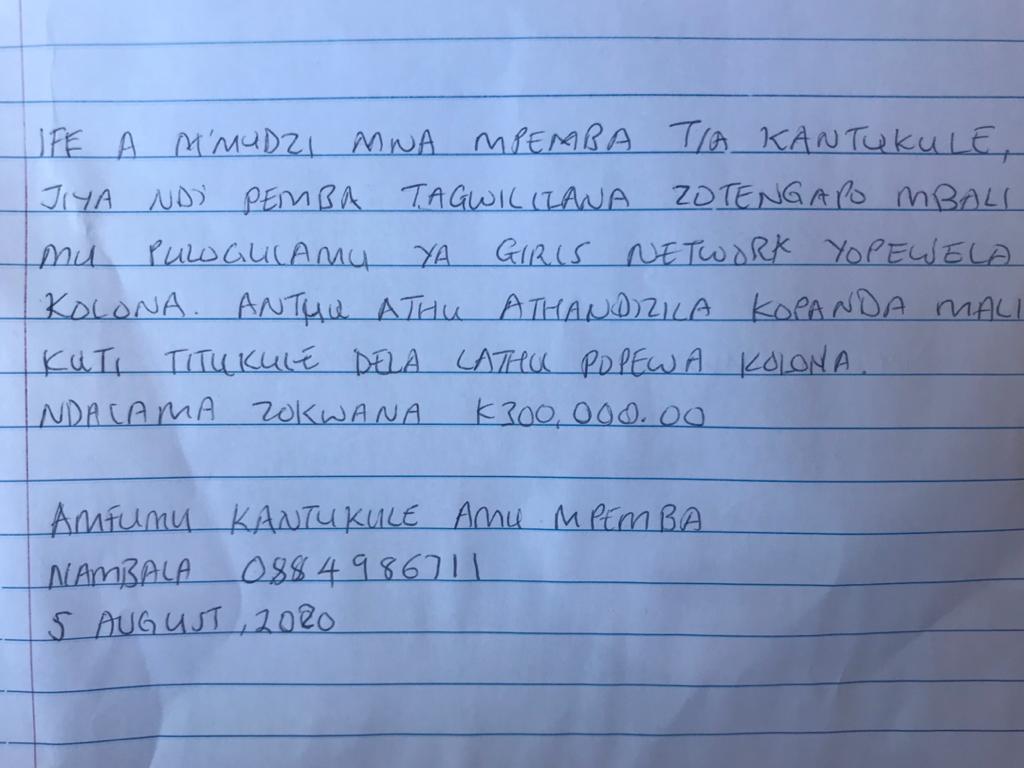 IFE A M'MUDZI MWA MPEMBA T/A KANTUKULE,
JIYA NDI PEMBA TAGWILIZANA ZOTENGAPO MBALI
MU PULOGULAMU YA GIRLS NETWORK YOPEWELA
KOLONA. ANTHU ATHU ATHANDIZILA KOPANDA MALI
KUTI TITUKULE DELA LATHU POPEWA KOLONA.
NDALAMA ZOKWANA K300,000.00
AMFUMU KANTUKULE AMU MPEMBA
NAMBALA 0884986711
5 AUGUST, 2020